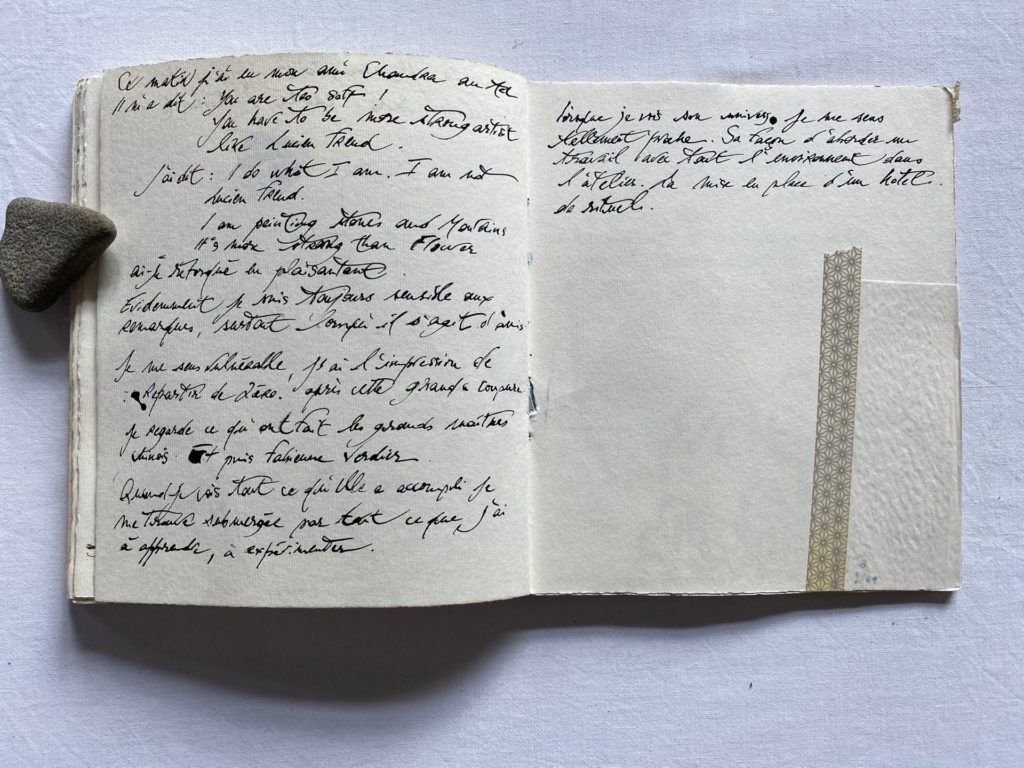 Ce matin j'ai eu mon ami Chandra au tel
Il m'a dit : You are too soft !
You have to be more strong artist
like Lucien Freud.
J'ai dit : I do what I am. I am not
Lucien Freud.
I am peinting stones and Montains
It's more strong than Flower
ai-je retorqué en plaisantant.
Evidemment je suis toujours sensible aux
remarques, surtout lorsqu'il s'agit d'amis
Je me sens vulnérable, j'ai l'impression de
Repartir de zéro. après cette grande coupure
je regarde ce qu'ont fait les grands maîtres
chinois. Et puis Fabienne Verdier
Quand je vois tout ce qu'elle a accompli je
me trouve submergée par tout ce que j'ai
à apprendre, à expérimenter.
lorsque je vois son univers, je me sens
tellement proche. Sa façon d'aborder un
travail avec tout l'environnement dans
l'atelier. La mise en place d'un hotel
de rituel.